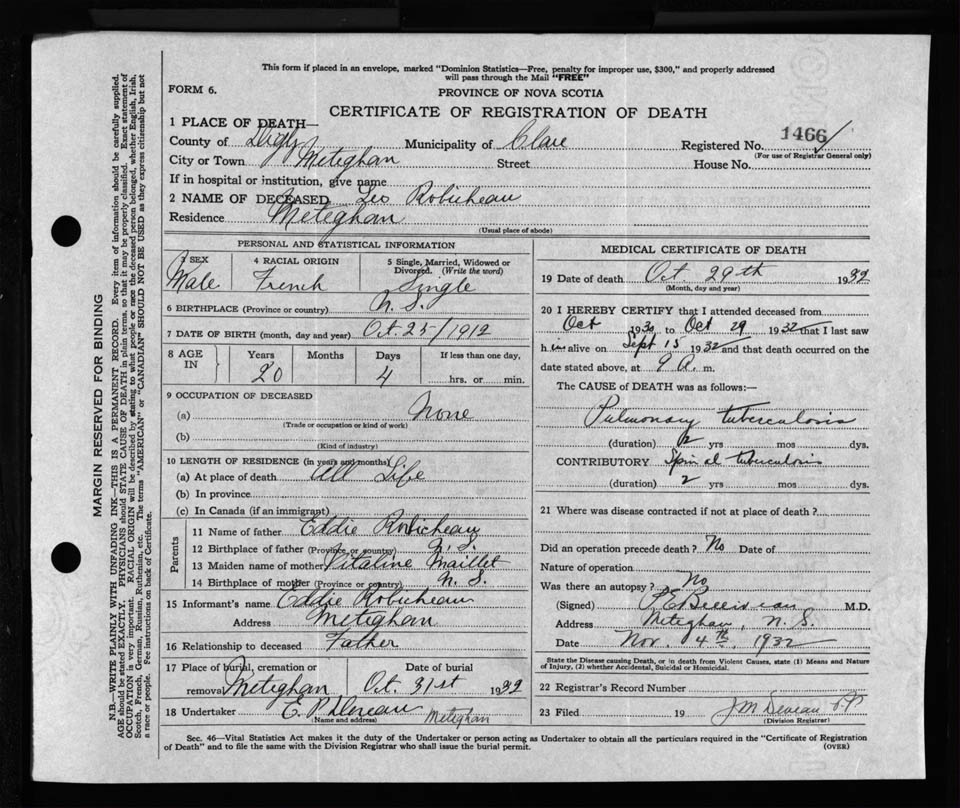 This form if placed in an envelope, marked "Dominion Statistics—Free, penalty for improper use, $300," and properly addressed
will pass through the Mail "FREE"
FORM 6.
PROVINCE OF NOVA SCOTIA
CERTIFICATE OF REGISTRATION OF DEATH
1 PLACE OF DEATH—
County of Digby Municipality of Clare Registered No. 1466
(For use of Registrar General only)
City or Town Meteghan Street House No.
If in hospital or institution, give name
2 NAME OF DECEASED Leo Robicheau
Residence Meteghan
(Usual place of abode)
PERSONAL AND STATISTICAL INFORMATION
3 SEX 4 RACIAL ORIGIN 5 Single, Married, Widowed or
Divorced. (Write the word)
Male French Single
6 BIRTHPLACE (Province or country) N. S.
7 DATE OF BIRTH (month, day and year) Oct. 25/1912
8 AGE IN Years Months Days If less than one day,
20 4 hrs. or min.
9 OCCUPATION OF DECEASED
(a) None
(Trade or occupation or kind of work)
(b)
(Kind of industry)
10 LENGTH OF RESIDENCE (in years and months)
(a) At place of death All Life
(b) In province
(c) In Canada (if an immigrant)
Parents
11 Name of father Eddie Robicheau
12 Birthplace of father (Province or country) N. S.
13 Maiden name of mother Vitaline Maillet
14 Birthplace of mother (Province or country) N. S.
15 Informant's name Eddie Robicheau
Address Meteghan
16 Relationship to deceased Father
17 Place of burial, cremation or Date of burial
removal Meteghan Oct. 31st 1932
18 Undertaker E. P. Deveau Meteghan
(Name and address)
MEDICAL CERTIFICATE OF DEATH
19 Date of death Oct. 29th 1932
(Month, day and year)
20 I HEREBY CERTIFY that I attended deceased from
Oct 1930 to Oct 29 1932 that I last saw
him alive on Sept 15 1932 and that death occurred on the
date stated above, at 9 A. m.
The CAUSE of DEATH was as follows:—
Pulmonary tuberculosis
(duration) 2 yrs mos dys.
CONTRIBUTORY Spinal tuberculosis
(duration) 2 yrs. mos. dys.
21 Where was disease contracted if not at place of death?
Did an operation precede death? No Date of
Nature of operation
Was there an autopsy? No
(Signed) M.D.
Address Meteghan, N. S.
Date Nov. 4th, 1932
State the Disease causing Death, or in death from Violent Causes, state (1) Means and Nature
of Injury, (2) whether Accidental, Suicidal or Homicidal.
22 Registrar's Record Number
23 Filed 19 J M Deveau
(Division Registrar)
Sec. 46—Vital Statistics Act makes it the duty of the Undertaker or person acting as Undertaker to obtain all the particulars required in the "Certificate of Registration
of Death" and to file the same with the Division Registrar who shall issue the burial permit.
(OVER)
MARGIN RESERVED FOR BINDING
N.B.—WRITE PLAINLY WITH UNFADING INK—THIS IS A PERMANENT RECORD. Every item of information should be carefully supplied.
AGE should be stated EXACTLY. PHYSICIANS should STATE CAUSE OF DEATH in plain terms, so that it may be properly classified. Exact statement of
OCCUPATION is very important. RACIAL ORIGIN will be described by stating to what people or race the deceased person belonged, whether English, Irish,
Scotch, French, German, Russian, Ruthenian, etc. The terms "AMERICAN" or "CANADIAN" SHOULD NOT BE USED as they express citizenship but not
a race or people. Fee instructions on back of Certificate.